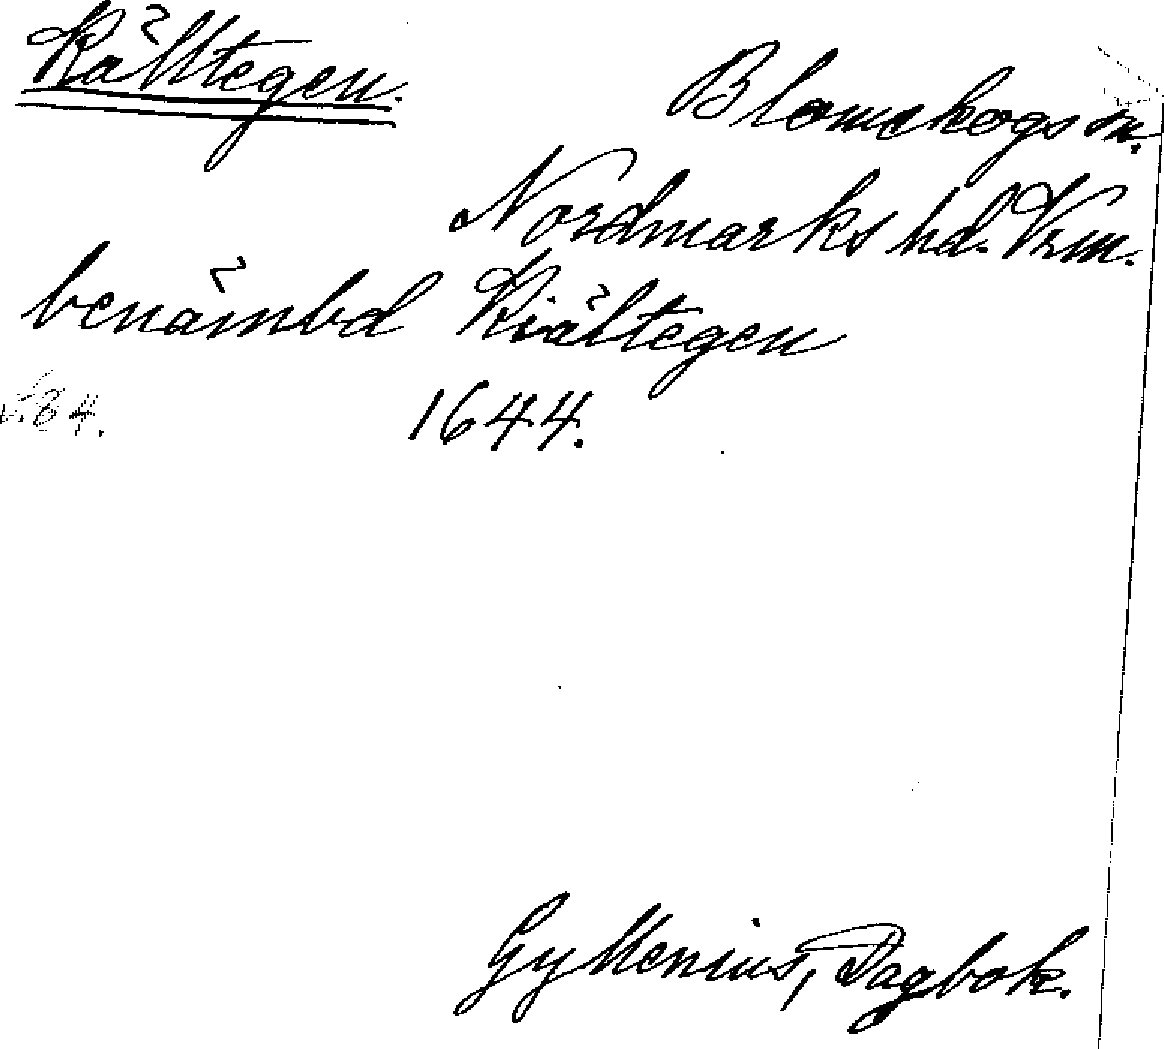 Källtegen.
Blomskogs sn.
Nordmarks hd. Vrm.
benämbd Kiältegen
s. 84. 1644.
Gyllenius, Dagbok.